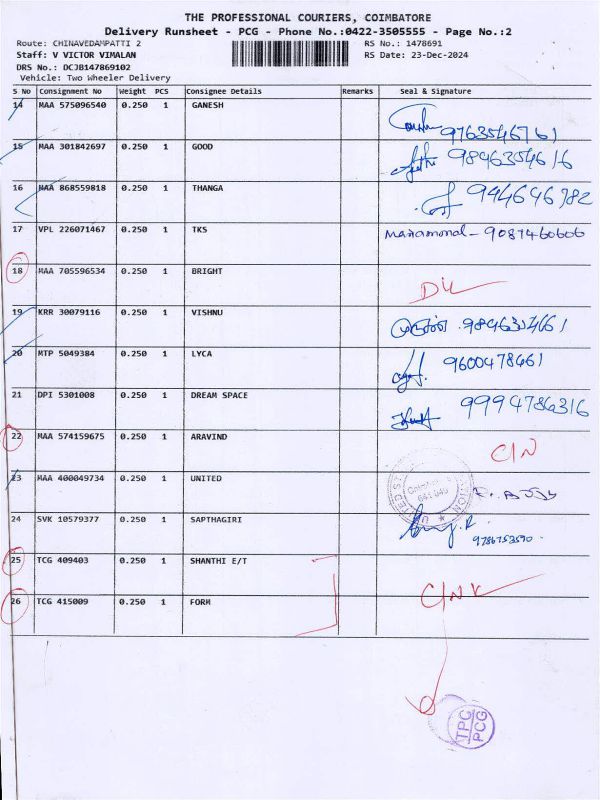 THE PROFESSIONAL COURIERS, COIMBATORE
Delivery Runsheet - PCG - Phone No.:0422-3505555 - Page No.:2
Route: CHINAVEDAMPATTI 2 RS No.: 1478691
Staff: V VICTOR VIMALAN RS Date: 23-Dec-2024
DRS No.: DCJB147869102
Vehicle: Two Wheeler Delivery
S No Consignment No Weight PCS Consignee Details Remarks Seal & Signature
14 MAA 575096540 0.250 1 GANESH 9763546761
15 MAA 301842697 0.250 1 GOOD 9846354616
16 MAA 868559818 0.250 1 THANGA 944646782
17 VPL 226071467 0.250 1 TKS 9087460606
18 MAA 705596534 0.250 1 BRIGHT
19 KRR 30079116 0.250 1 VISHNU 9846354661
20 MTP 5049384 0.250 1 LYCA 9600478661
21 DPI 5301008 0.250 1 DREAM SPACE 9994786316
22 MAA 574159675 0.250 1 ARAVIND CIN
23 MAA 400049734 0.250 1 UNITED
24 SVK 10579377 0.250 1 SAPTHAGIRI 9786753590
25 TCG 409403 0.250 1 SHANTHI E/T
26 TCG 415009 0.250 1 FORM CNK
TPC
PCG